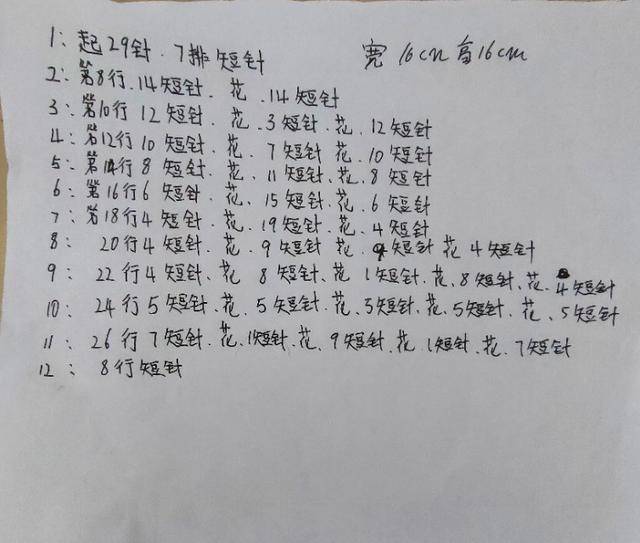 1: 起29针.7排短针 宽16cm高16cm
2: 第8行.14短针.花.14短针
3: 第10行 12短针.花.3短针.花.12短针
4: 第12行 10短针.花.7短针 花.10短针
5: 第14行 8短针.花.11短针.花.8短针
6: 第16行 6短针.花.15短针.花.6短针
7: 第18行4短针.花.19短针.花.4短针
8: 20行4短针.花.9短针 花.9短针 花4短针
9: 22行4短针、花 8短针、花 1短针.花、8短针、花、4短针
10: 24行5短针、花、5短针、花、5短针、花、5短针、花、5短针
11: 26行7短针.花、1短针、花、9短针、花1短针、花、7短针
12: 8行短针